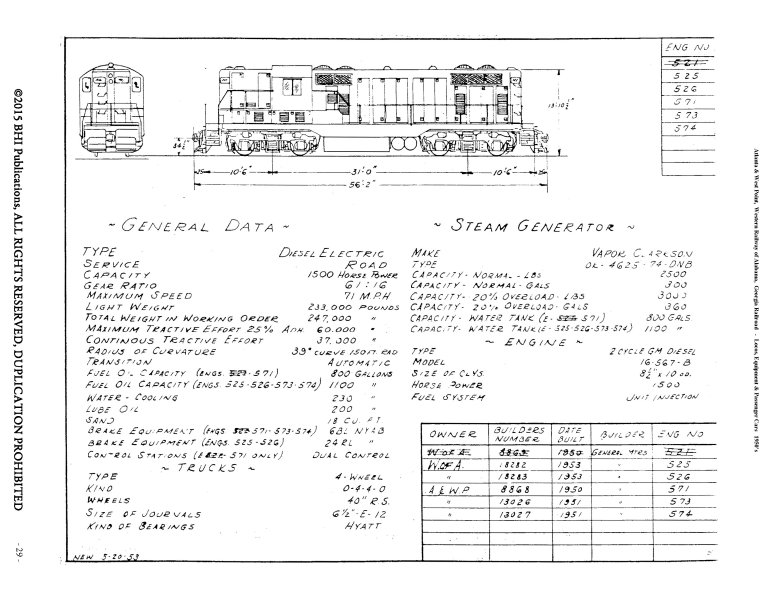 ©2015 BHI Publications, ALL RIGHTS RESERVED, DUPLICATION PROHIBITED
- 29 -
Atlanta & West Point, Western Railway of Alabama, Georgia Railroad - Locos, Equipment & Passenger Cars 1950's
ENG NO
521
525
526
571
573
574
34½"
15'-10½"
10'6"
31'-0"
10'6"
56'-2"
~ GENERAL DATA ~
TYPE DIESEL ELECTRIC
SERVICE ROAD
CAPACITY 1500 HORSE POWER
GEAR RATIO 61:16
MAXIMUM SPEED 71 M.P.H
LIGHT WEIGHT 233,000 POUNDS
TOTAL WEIGHT IN WORKING ORDER 247,000 "
MAXIMUM TRACTIVE EFFORT 25% ADH. 60.000 "
CONTINOUS TRACTIVE EFFORT 37,000 "
RADIUS OF CURVATURE 39° CURVE 150 FT. RAD
TRANSITION AUTOMATIC
FUEL OIL CAPACITY (ENGS. 521-571) 800 GALLONS
FUEL OIL CAPACITY (ENGS. 525-526-573-574) 1100 "
WATER - COOLING 230 "
LUBE OIL 200 "
SAND 18 CU. FT.
BRAKE EQUIPMENT (ENGS 521 571-573-574) 6BL NYAB
BRAKE EQUIPMENT (ENGS. 525-526) 24 RL "
CONTROL STATIONS (521 571 ONLY) DUAL CONTROL
~ TRUCKS ~
TYPE 4-WHEEL
KIND 0-4-4-0
WHEELS 40" R.S.
SIZE OF JOURNALS 6½"-E-12
KIND OF BEARINGS HYATT
NEW 5-20-53
~ STEAM GENERATOR ~
MAKE VAPOR CLARKSON
TYPE OK-4625-74-DNB
CAPACITY - NORMAL - LBS 2500
CAPACITY - NORMAL - GALS 300
CAPACITY - 20% OVERLOAD - LBS 3000
CAPACITY - 20% OVERLOAD - GALS 360
CAPACITY - WATER TANK (E- 521 571) 800 GALS
CAPACITY - WATER TANK (E-525-526-573-574) 1100 "
~ ENGINE ~
TYPE 2 CYCLE GM DIESEL
MODEL 16-567-B
SIZE OF CLYS. 8½" x 10
HORSE POWER 1500
FUEL SYSTEM UNIT INJECTION
OWNER BUILDERS NUMBER DATE BUILT BUILDER ENG NO
W. OF A. 8869 1950 GENERAL MTRS 521
W. OF A. 18282 1953 " 525
" 18283 1953 " 526
A & W.P 8868 1950 " 571
" 13026 1951 " 573
" 13027 1951 " 574